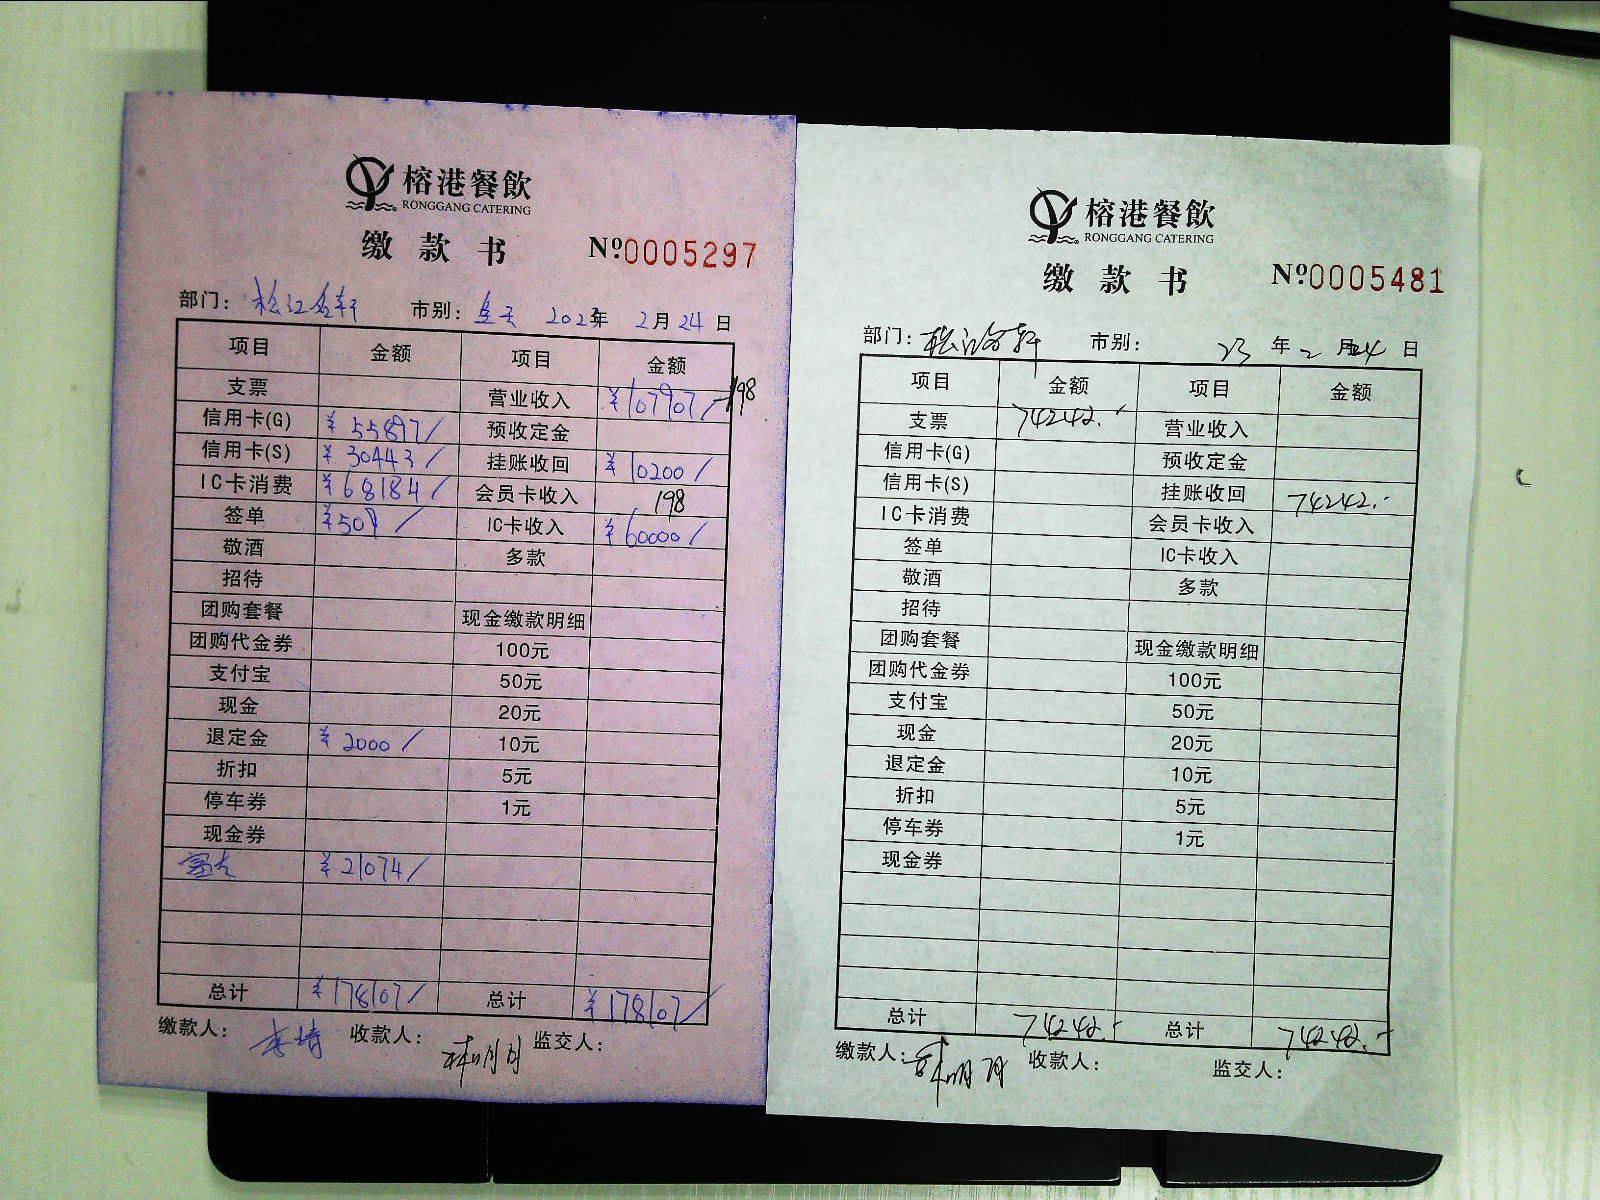 榕港餐飲
RONGGANG CATERING
缴款书 №0005297
部门: 松江名轩 市别: 全天 2023年 2月24日
项目 金额 项目 金额
支票 营业收入 ¥107907/ -198
信用卡(G) ¥55897/ 预收定金
信用卡(S) ¥30443/ 挂账收回 ¥10200/
IC卡消费 ¥68184/ 会员卡收入 198
签单 ¥509/ IC卡收入 ¥60000/
敬酒 多款
招待
团购套餐 现金缴款明细
团购代金券 100元
支付宝 50元
现金 20元
退定金 ¥2000/ 10元
折扣 5元
停车券 1元
现金券
¥21074/
总计 ¥178107/ 总计 ¥178107/
缴款人: 收款人: 林明月 监交人:
榕港餐飲
RONGGANG CATERING
缴款书 №0005481
部门: 松江名轩 市别: 23年2月24日
项目 金额 项目 金额
支票 74242.- 营业收入
信用卡(G) 预收定金
信用卡(S) 挂账收回 74242.-
IC卡消费 会员卡收入
签单 IC卡收入
敬酒 多款
招待
团购套餐 现金缴款明细
团购代金券 100元
支付宝 50元
现金 20元
退定金 10元
折扣 5元
停车券 1元
现金券
总计 74242.- 总计 74242.-
缴款人: 林明月 收款人: 监交人: